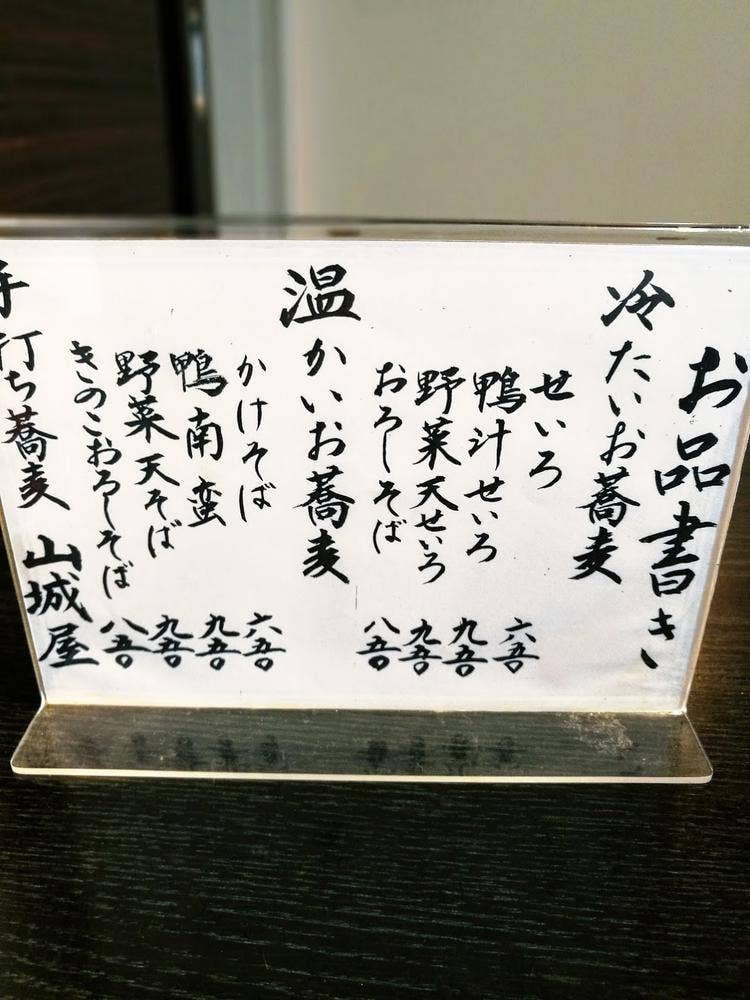 お品書き
冷たいお蕎麦
せいろ 六五〇
鴨汁せいろ 九五〇
野菜天せいろ 九五〇
おろしそば 八五〇
温かいお蕎麦
かけそば 六五〇
鴨南蛮 九五〇
野菜天そば 九五〇
きのこおろしそば 八五〇
手打ち蕎麦 山城屋